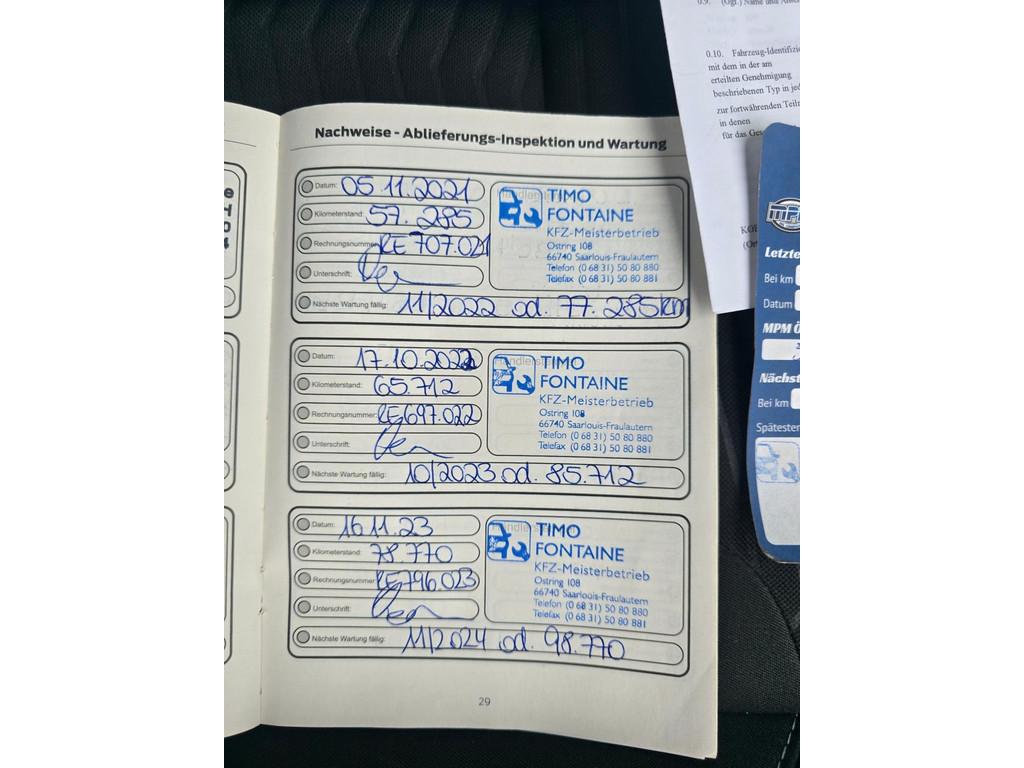 Nachweise - Ablieferungs-Inspektion und Wartung
Datum: 05.11.2021
Kilometerstand: 57.285
Rechnungsnummer: RE 707.021
Unterschrift:
Nächste Wartung fällig: 11/2022 od. 77.285km
TIMO
FONTAINE
KFZ-Meisterbetrieb
Ostring 108
66740 Saarlouis-Fraulautern
Telefon (0 68 31) 50 80 880
Telefax (0 68 31) 50 80 881
Datum: 17.10.2022
Kilometerstand: 65.712
Rechnungsnummer: RE697.022
Unterschrift:
Nächste Wartung fällig: 10/2023 od. 85.712
TIMO
FONTAINE
KFZ-Meisterbetrieb
Ostring 108
66740 Saarlouis-Fraulautern
Telefon (0 68 31) 50 80 880
Telefax (0 68 31) 50 80 881
Datum: 16.11.23
Kilometerstand: 78.770
Rechnungsnummer: RE796.023
Unterschrift:
Nächste Wartung fällig: 11/2024 od. 98.770
TIMO
FONTAINE
KFZ-Meisterbetrieb
Ostring 108
66740 Saarlouis-Fraulautern
Telefon (0 68 31) 50 80 880
Telefax (0 68 31) 50 80 881
29
0.10. Fahrzeug-Identifizie
mit dem in der am
erteilten Genehmigung
beschriebenen Typ in jed
zur fortwährenden Teiln
in denen
für das Ges
Letzte
Bei km
Datum
MPM Ö
Nächst
Bei km
Spätesten